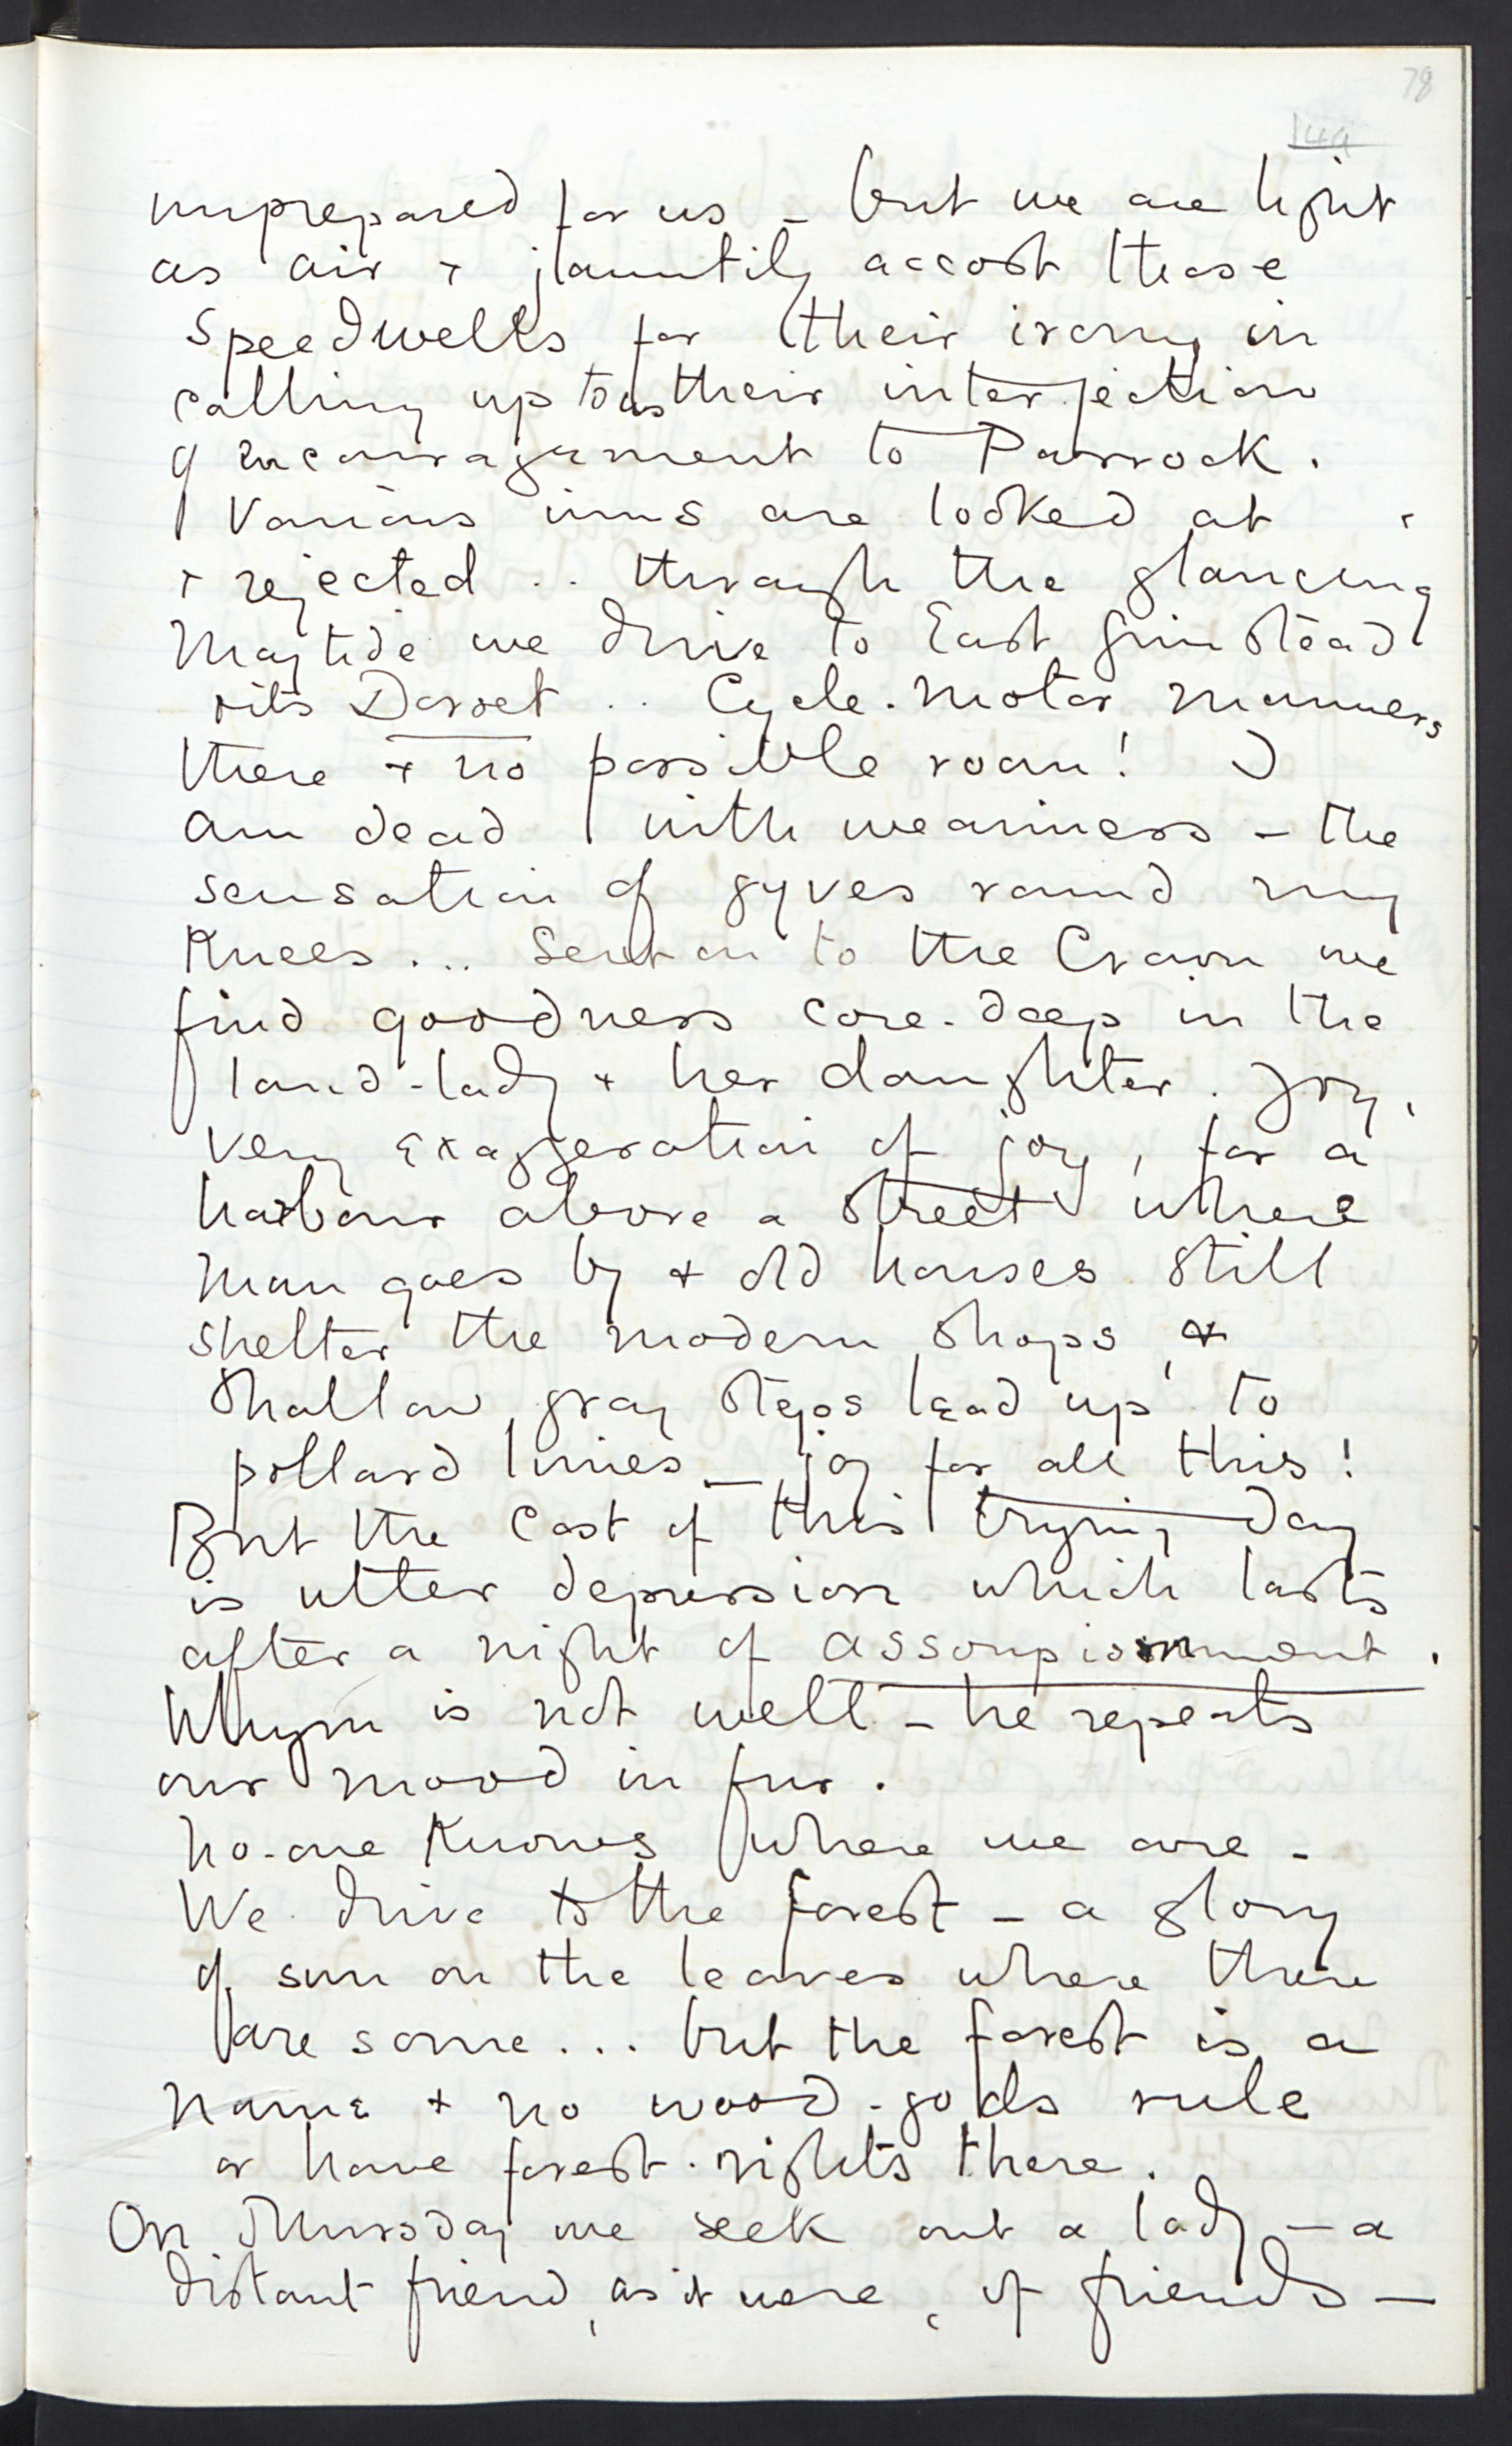 78
149
unprepared for us – but we are light
as air + jauntily accost these
Speedwells for their irony in
calling up to us their interjection
of encouragement to Parrock.
Various inns are looked at
+ rejected .. through the glancing
Maytide we drive to East Grinstead
+ its Dorset .. Cycle-motor manners
there + no possible room! I
am dead with weariness – the
sensation of gyves round my
Knees ... Sent on to the Crown we
find goodness core-deep in the
land-lady + her daughter. Joy,
very exaggeration of joy, for a
harbour above a street where
man goes by + old houses still
shelter the modern shops, +
shallow, gray steps lead up to
pollard limes – joy for all this!
But the cost of this trying day
is utter depression which lasts
after a night of assoupissement.
Whym is not well – he repeats
our mood in fur.
No-one Knows where we are –
We drive to the forest – a glory
of sun on the leaves where there
are some ... but the forest is a
name + no wood-gods rule
or have forest-rights there.
On Thursday we seek out a lady – a
distant friend, as it were, of friends –